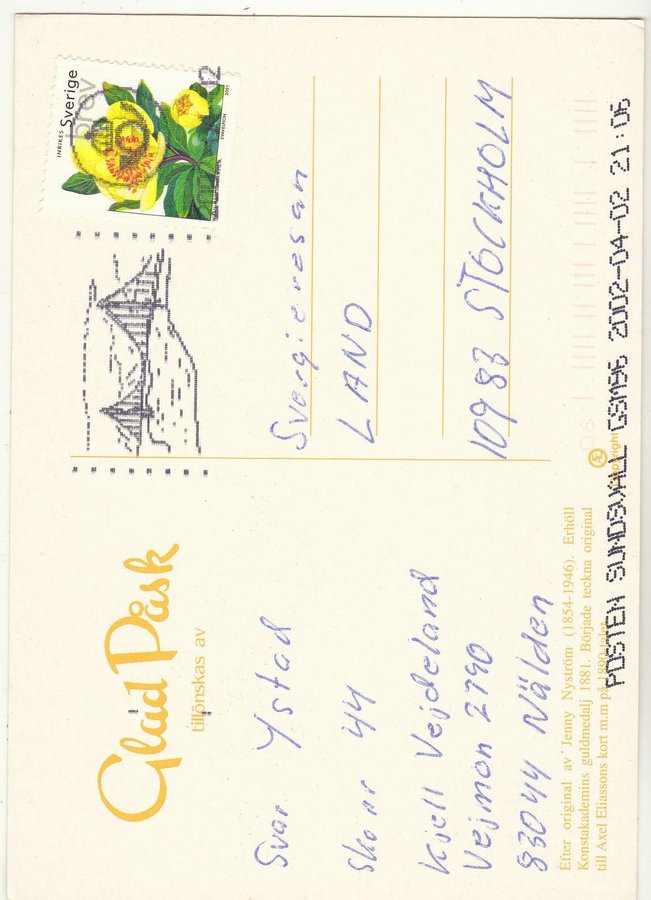 Glad Påsk
tillönskas av
Svar Ystad
Skorr 44
Kjell Vejdeland
Vejmon 2790
83044 Nälden
Efter original av Jenny Nyström (1854-1946). Erhöll
Konstakademins guldmedalj 1881. Började teckna original
till Axel Eliassons kort m.m på 1890-talet
INRIKES Sverige
brev
Svergieresan
LAND
10983 STOCKHOLM
Copyright
POSTEN SUNDSVALL GSM96 2002-04-02 21:06